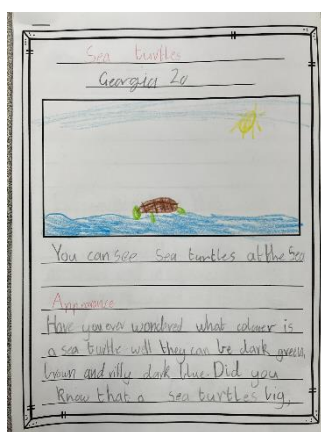 Sea turtles
Georgia 20
You can see sea turtles at the Sea
Apperance
Have you ever wondered what colour is
a sea turtle well they can be dark green,
brown and rilly dark blue. Did you
know that a sea turtles big,